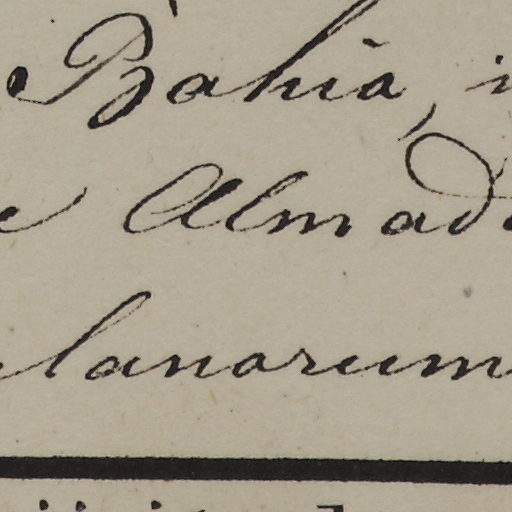 Bahia, i
e Almada
lanarum